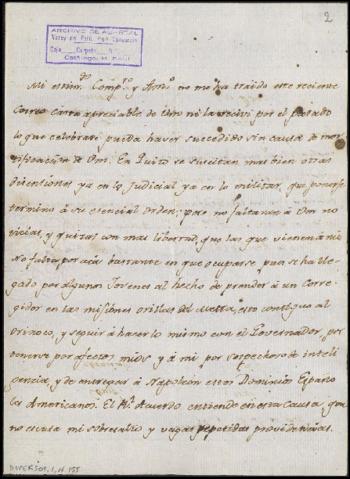 ARCHIVO DE
2
Mi estim.do Comp.o y Am.o no me ha traido este reciente
Correo carta apreciable de Vm ni la recivi por el pasado
lo que celebraré pueda haver succedido sin causa de mor
tificacion de Vm. En Quito se suscitan mas bien otras
disenciones ya en lo Judicial ya en lo militar, que ponerse
termino á su esencial orden; pero no faltaran á Vm no
ticias, y quizas con mas libertad, que las que vienen á mi
No falta por acá bastante en que ocuparse, pues se ha lle
gado por algunos Jovenes al hecho de prender á un Corre
gidor en las misiones orillas del Meta, rio contiguo al
Orinoco, y seguir á hacer lo mismo con el Governador, per
por afectos mios y á mi por sospechoso de inteli
gencia, y de entregar á Napoleón estos Dominios Españo
les Americanos. El R.l Acuerdo entiende en esta Causa, que
no escusa mi sobresalto y vagas repetidas providencias.
DIVERSOS, 1, N. 155